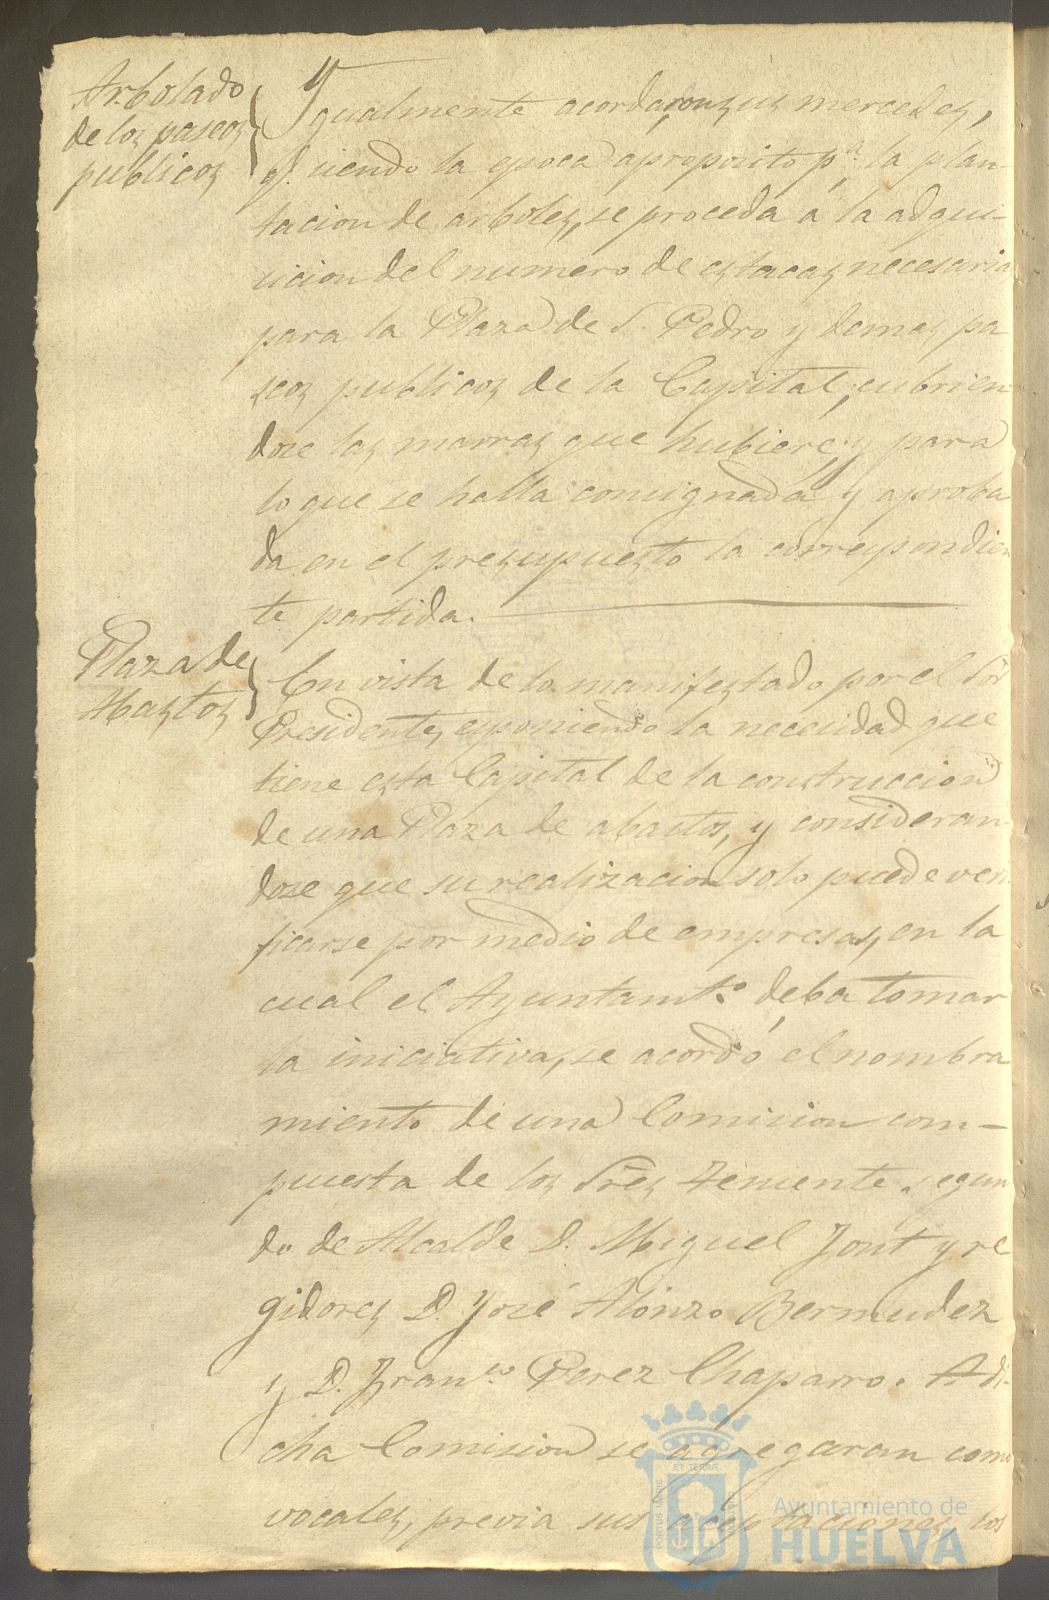 Arbolado
de los paseos
publicos
Ygualmente acordaron sus mercedes,
q. siendo la epoca aproposito pª. la plan-
tacion de arboles, se proceda á la adqui-
sicion del numero de estacas necesarias
para la Plaza de S. Pedro y demas pa-
seos publicos de la Capital, cubrien-
dose las marras que hubiere, y para
lo que se halla consignada y aproba
da en el presupuesto la correspondien
te partida.
Plaza de
Abastos
En vista de lo manifestado por el Sor
Presidente, esponiendo la necesidad que
tiene esta Capital de la construccion
de una Plaza de abastos, y consideran-
dose que su realizacion solo puede veri
ficarse por medio de empresas, en la
cual el Ayuntamtº. deba tomar
la iniciativa, se acordó el nombra
miento de una Comision com-
puesta de los Sres. Teniente segun
do de Alcalde D. Miguel Jont y re
gidores D. José Alonzo Bermudez
y D. Francº. Perez Chaparro. A di-
cha Comision se agregaran como
vocales, previa sus aceptaciones, los
PORTUS MARIS
ET TERRÆ
Ayuntamiento de
HUELVA